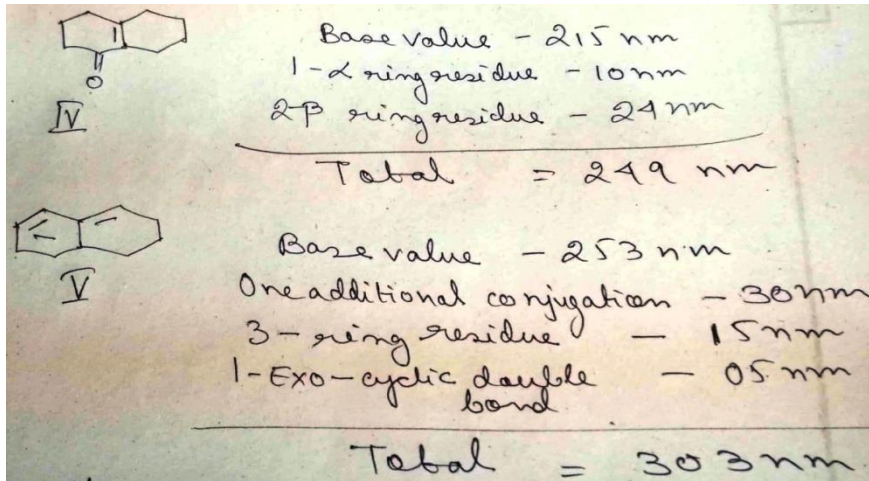 Base value - 215 nm
1-α ring residue - 10nm
O
2-β ring residue - 24 nm
IV
Total = 249 nm
Base value - 253 nm
V
One additional conjugation - 30nm
3- ring residue - 15nm
1-Exo-cyclic double bond - 05 nm
Total = 303nm